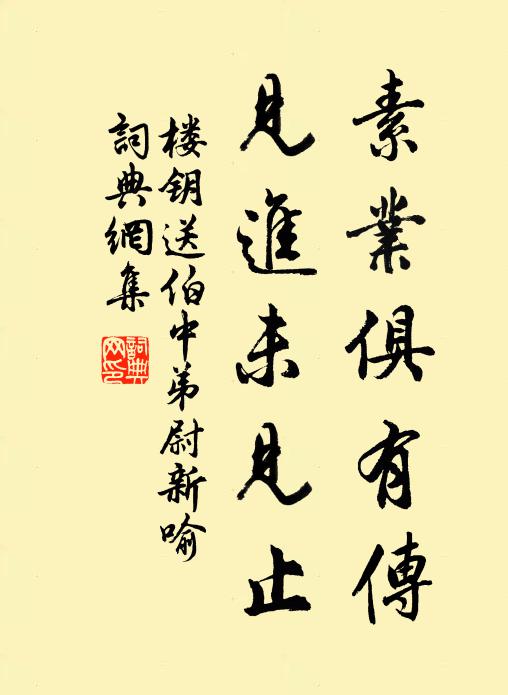 素業俱有傳
見進未見止
楼钥送伯中弟尉新喻
詞典網集
詞典
网印